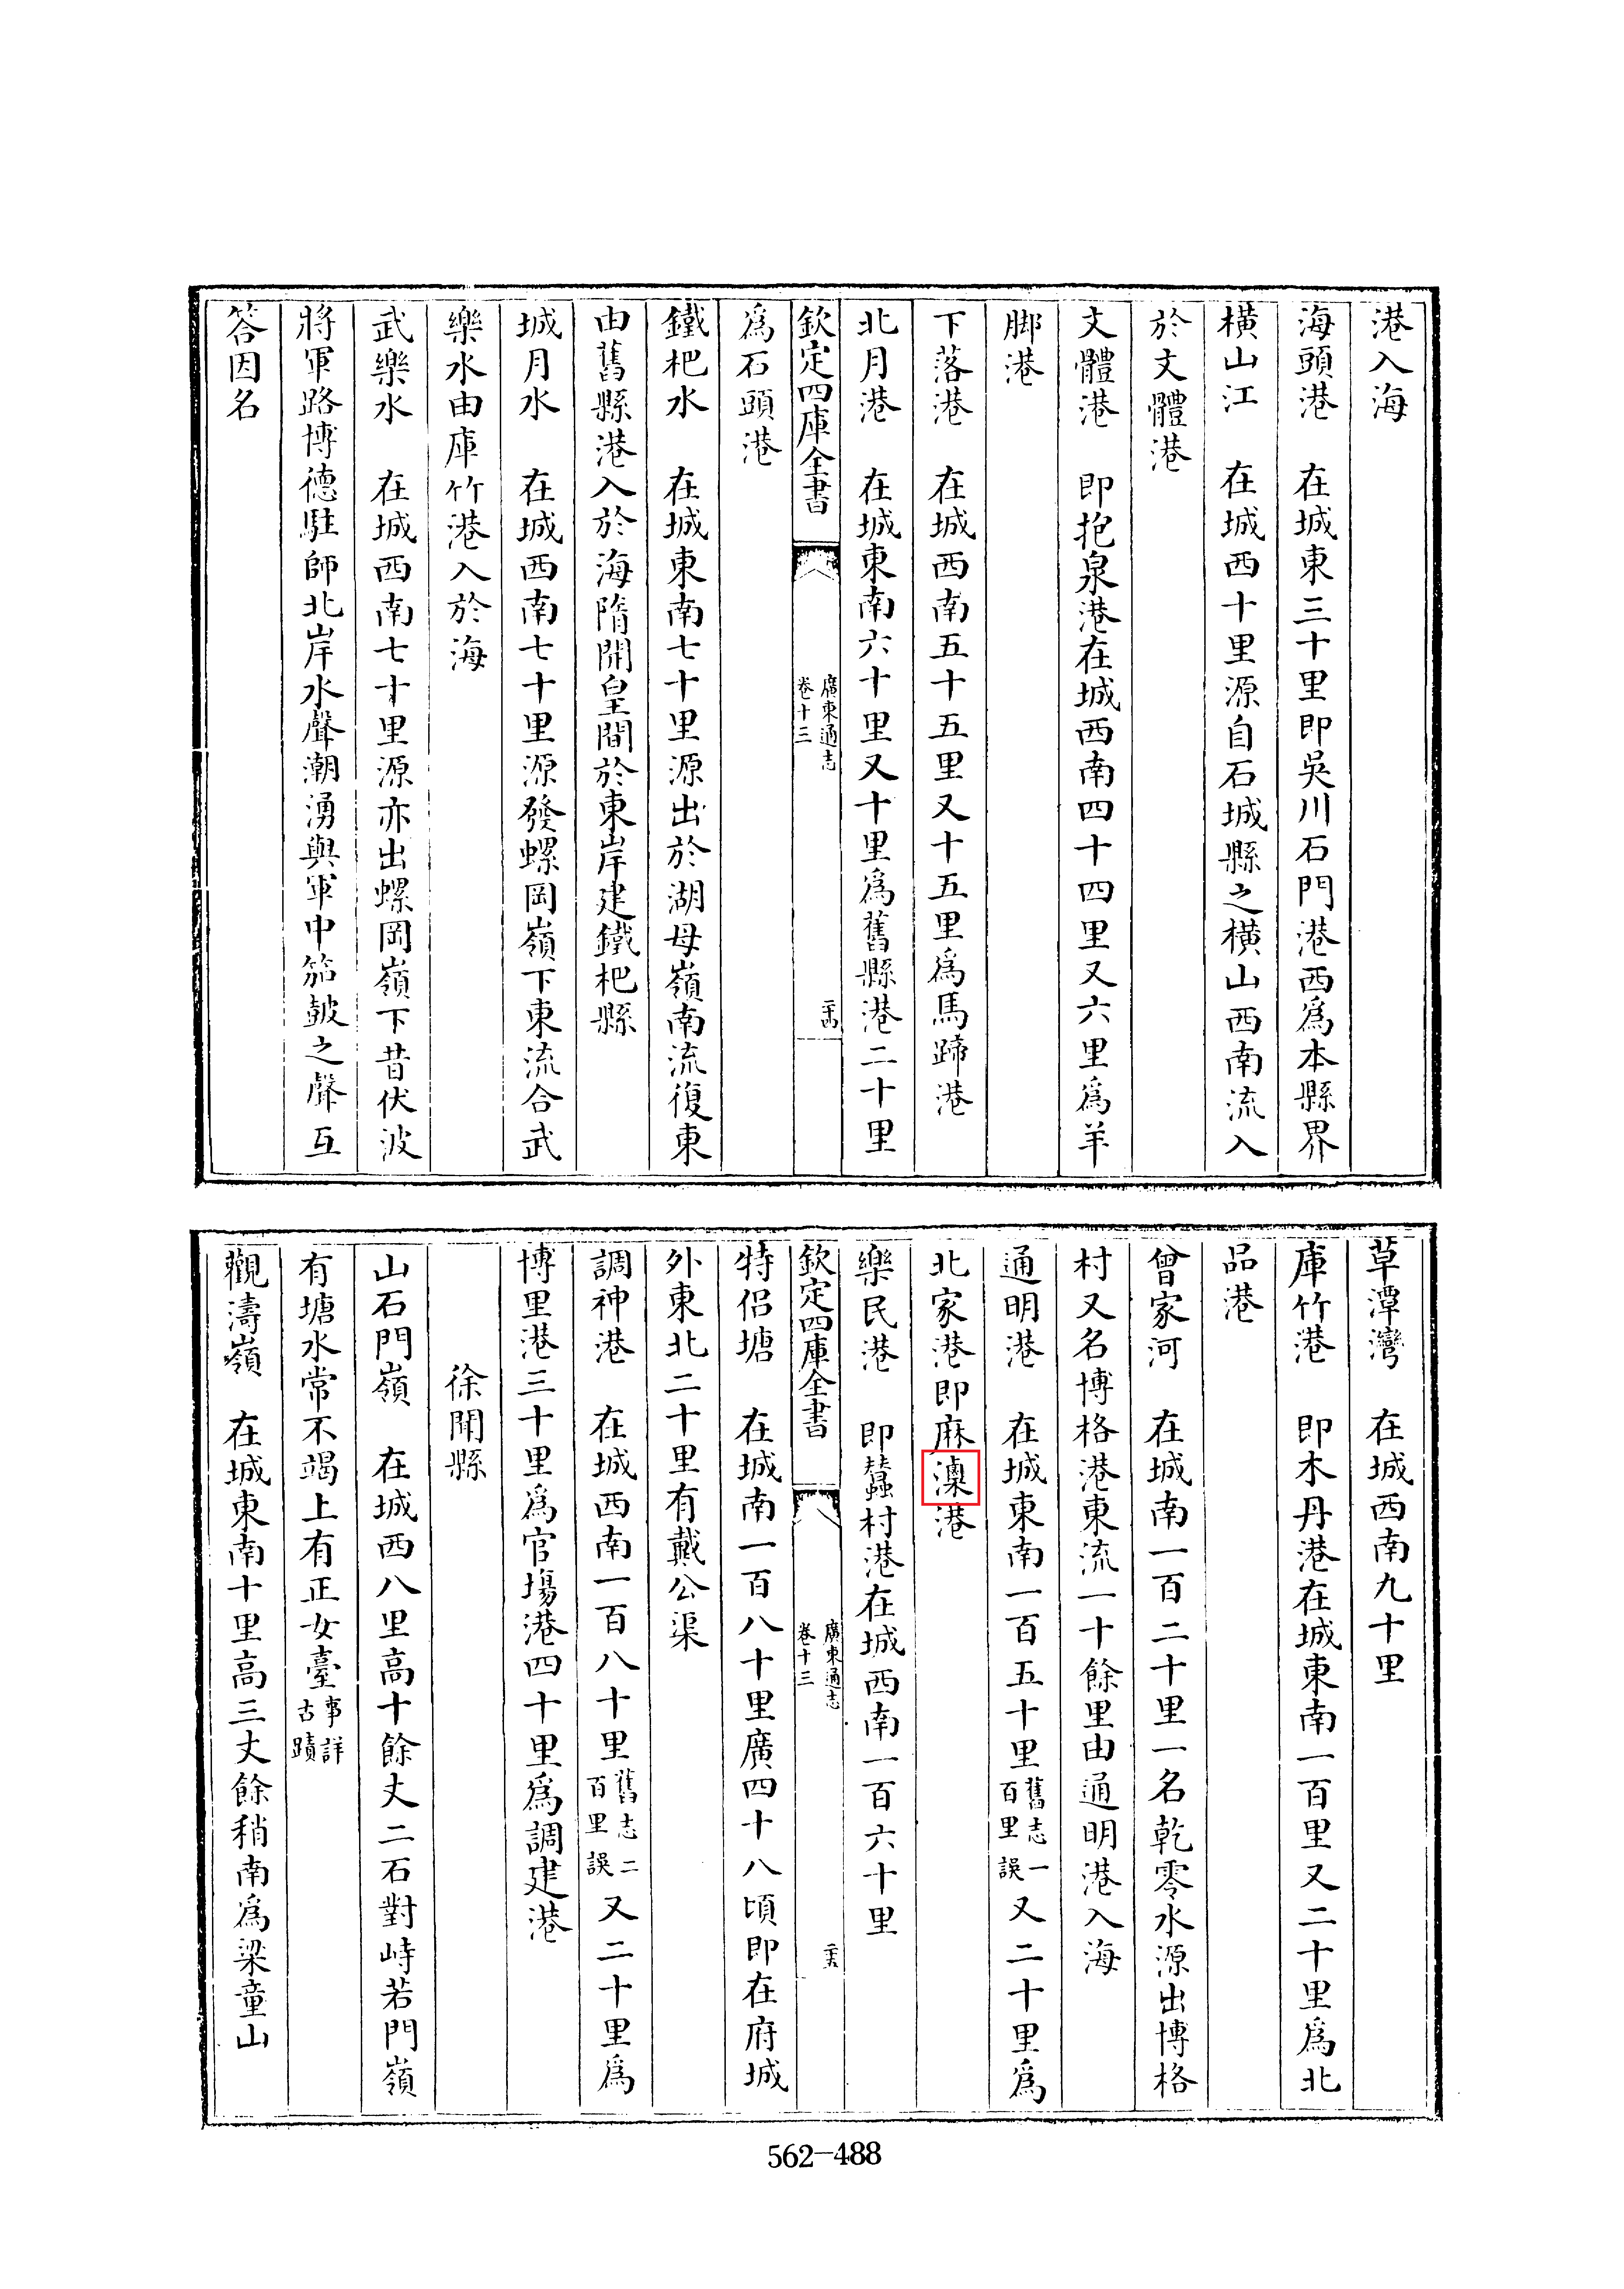 港入海
海頭港　在城東三十里即吳川石門港西爲本縣界
橫山江　在城西十里源自石城縣之橫山西南流入
於文體港
文體港　即抱泉港在城西南四十四里又六里爲羊
脚港
下落港　在城西南五十五里又十五里爲馬蹄港
北月港　在城東南六十里又十里爲舊縣港二十里
欽定四庫全書
廣東通志
卷十三
二十四
爲石頭港
鐵杷水　在城東南七十里源出於湖母嶺南流復東
由舊縣港入於海隋開皇間於東岸建鐵杷縣
城月水　在城西南七十里源發螺岡嶺下東流合武
樂水由庫竹港入於海
武樂水　在城西南七十里源亦出螺岡嶺下昔伏波
將軍路博德駐師北岸水聲潮湧與軍中笳鼓之聲互
答因名
草潭灣　在城西南九十里
庫竹港　即木丹港在城東南一百里又二十里爲北
品港
曾家河　在城南一百二十里一名乾零水源出博格
村又名博格港東流一十餘里由通明港入海
通明港　在城東南一百五十里舊志一百里誤又二十里爲
北家港即麻港
樂民港　即蠶村港在城西南一百六十里
欽定四庫全書
廣東通志
卷十三
二十五
特侶塘　在城南一百八十里廣四十八頃即在府城
外東北二十里有戴公渠
調神港　在城西南一百八十里舊志二百里誤又二十里爲
博里港三十里爲官塲港四十里爲調建港
徐聞縣
山石門嶺　在城西八里高十餘丈二石對峙若門嶺
有塘水常不竭上有正女臺事詳古蹟
觀濤嶺　在城東南十里高三丈餘稍南爲梁童山
562-488